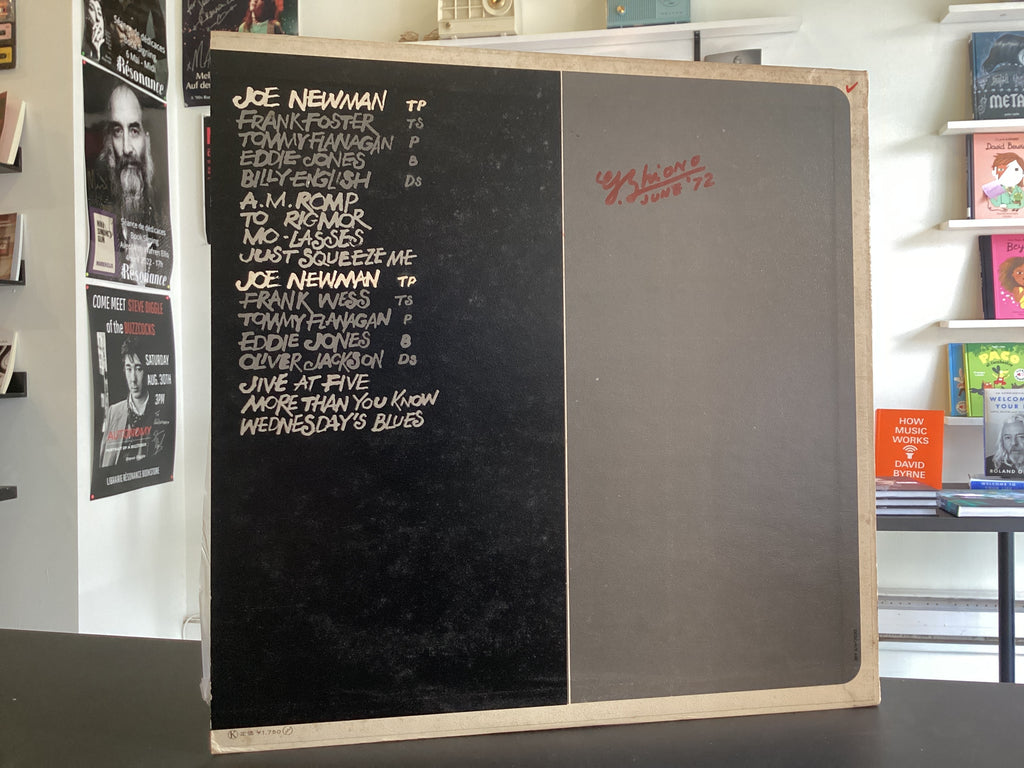 JOE NEWMAN TP
FRANK FOSTER TS
TOMMY FLANAGAN P
EDDIE JONES B
BILLY ENGLISH DS
A.M. ROMP
TO RIGMOR
MO-LASSES
JUST SQUEEZE ME
JOE NEWMAN TP
FRANK WESS TS
TOMMY FLANAGAN P
EDDIE JONES B
OLIVER JACKSON DS
JIVE AT FIVE
MORE THAN YOU KNOW
WEDNESDAY'S BLUES
JUNE '72
K 定価 ¥1,750
Résonance
Résonance
COME MEET STEVE DIGGLE
of the BUZZCOCKS
SATURDAY
AUG. 30TH
3PM
AUTONOMY
LIBRAIRIE RÉSONANCE BOOKSTORE
META
David Bow
Bey
PACO
HOW
MUSIC
WORKS
DAVID
BYRNE
WELCOM
YOUR
ROLAND O